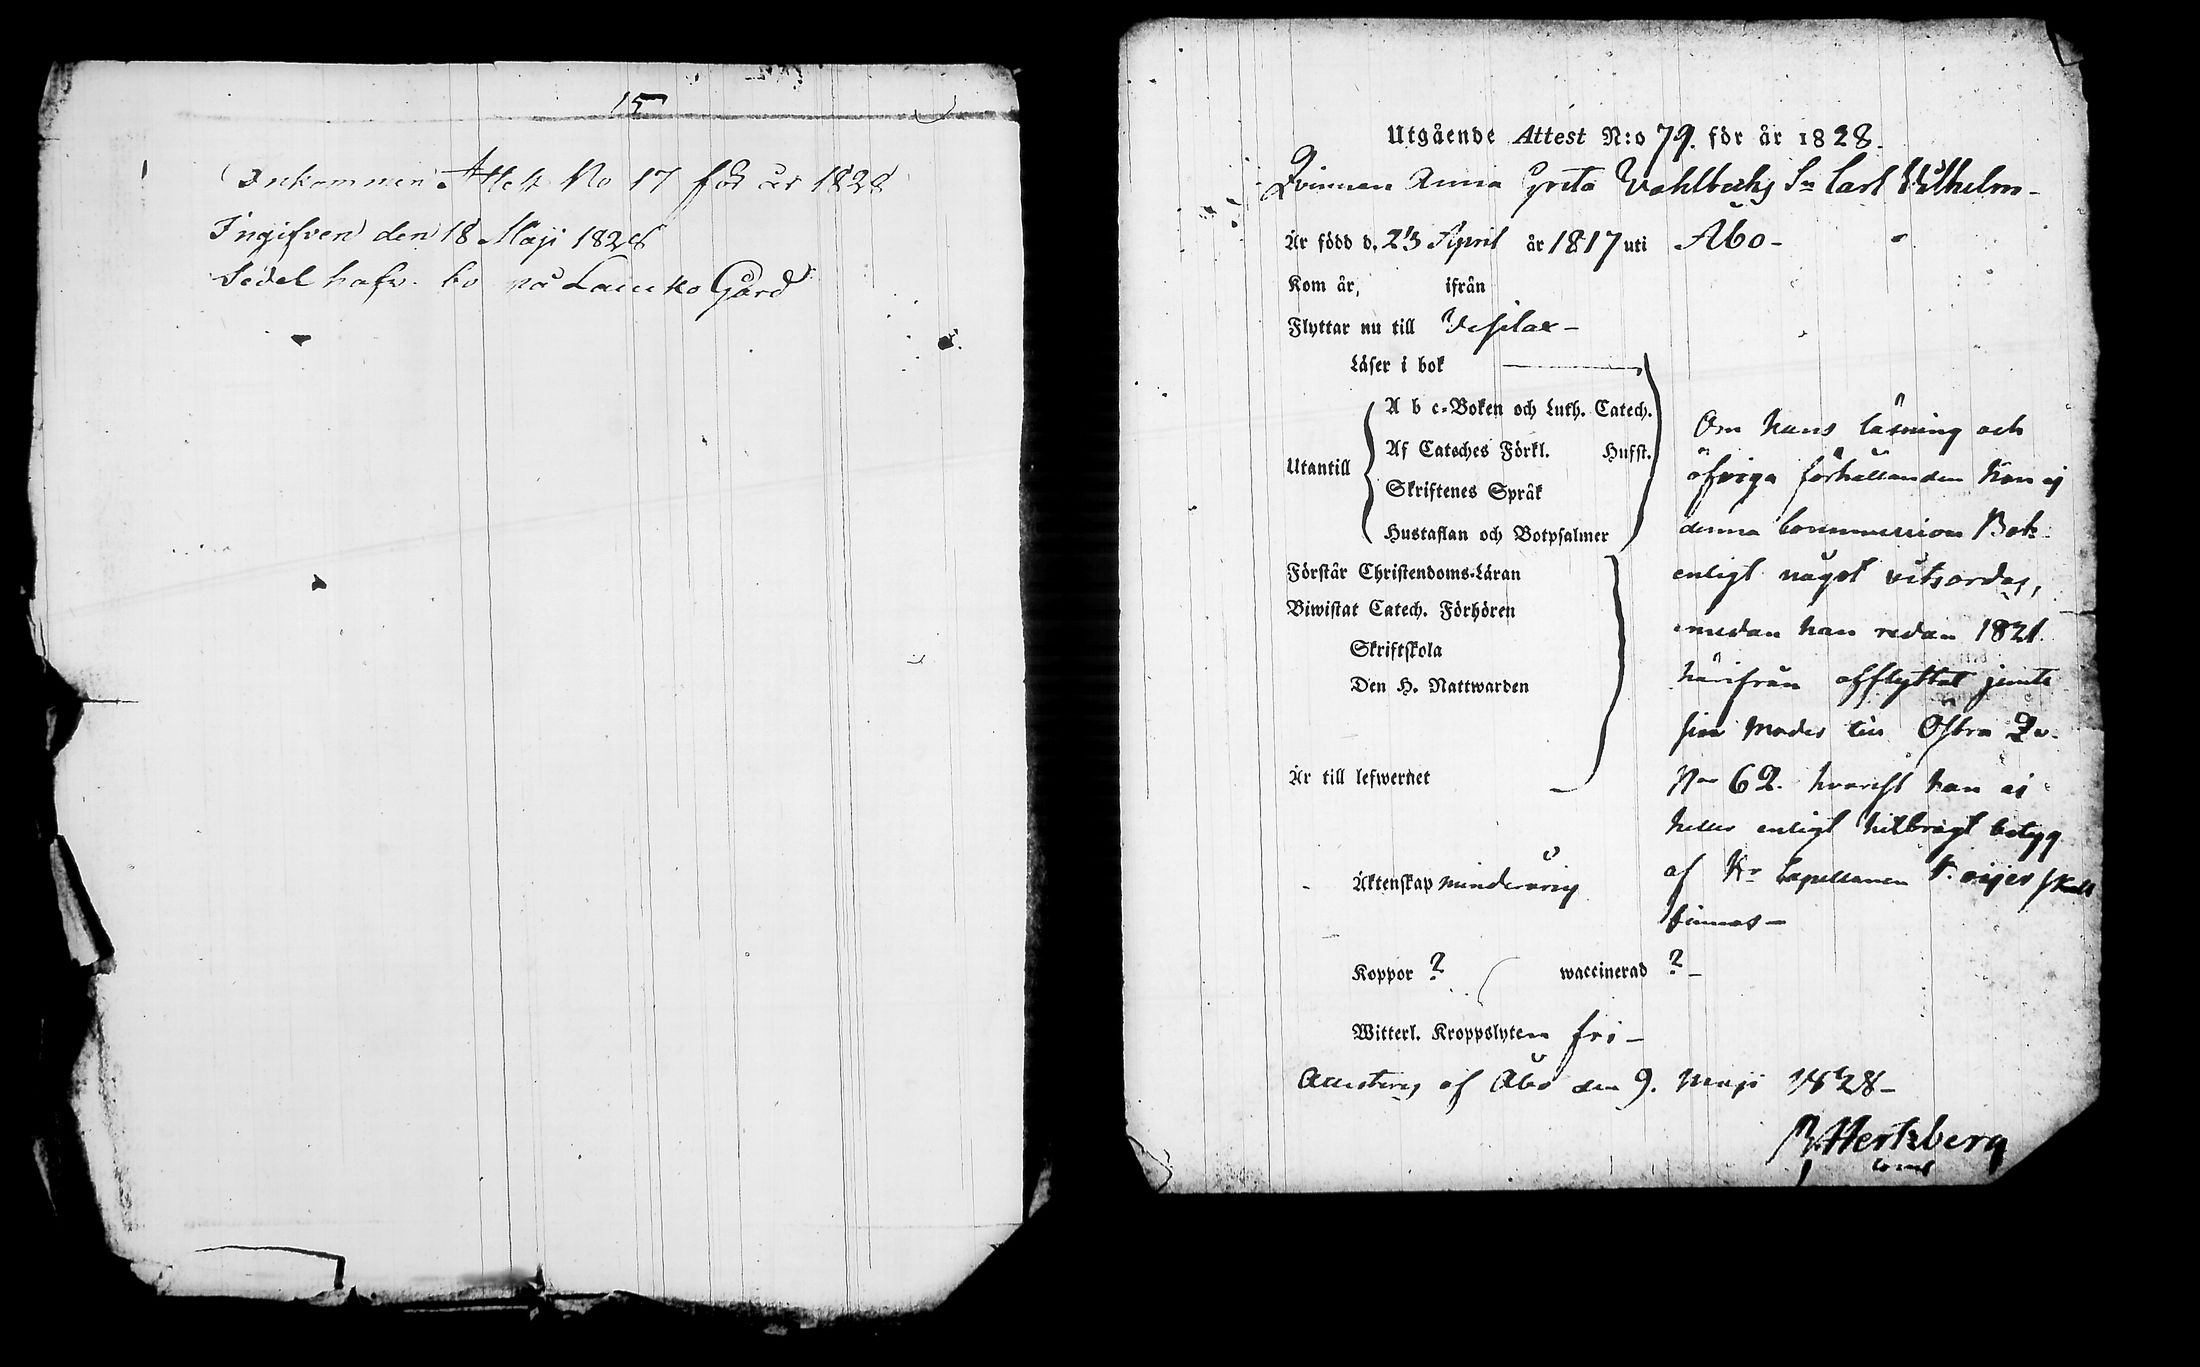 15
Inkommen Attest No 17 för år 1828
Ingifven den 18 Maji 1828
Sedel hafv. bo på Laucko Gård
Utgående Attest N:o 79. för år 1828.
Qvinnan Anna Greta Vahlbergs Sn Carl Vilhelm -
Är född d. 23 April år 1817 uti Åbo -
Kom år, ifrån
Flyttar nu till Vesilax -
Läser i bok
A b c-Boken och Luth. Catech.
Af Cateches Förkl. Hufst.
Utantill
Skriftenes Språk
Hustaflan och Botpsalmer
Förstår Christendoms-Läran
Biwistat Catech. Förhören
Skriftskola
Den H. Nattwarden
Är till lefwernet
Om hans läsning och
öfriga förhållanden kan ej
denna Communion Bok
enligt något vitsordas,
emedan han redan 1821
härifrån afflyttat jemte
sin Moder till Östra Qv.
No 62. hvarest han ej
heller enligt betyg
af Capellanen skall
finnas -
Äktenskap minderårig
Koppor ? waccinerad ? -
Witterl. Kroppslyten fri -
Attesteras af Åbo den 9. Maji 1828 -
Hertzberg